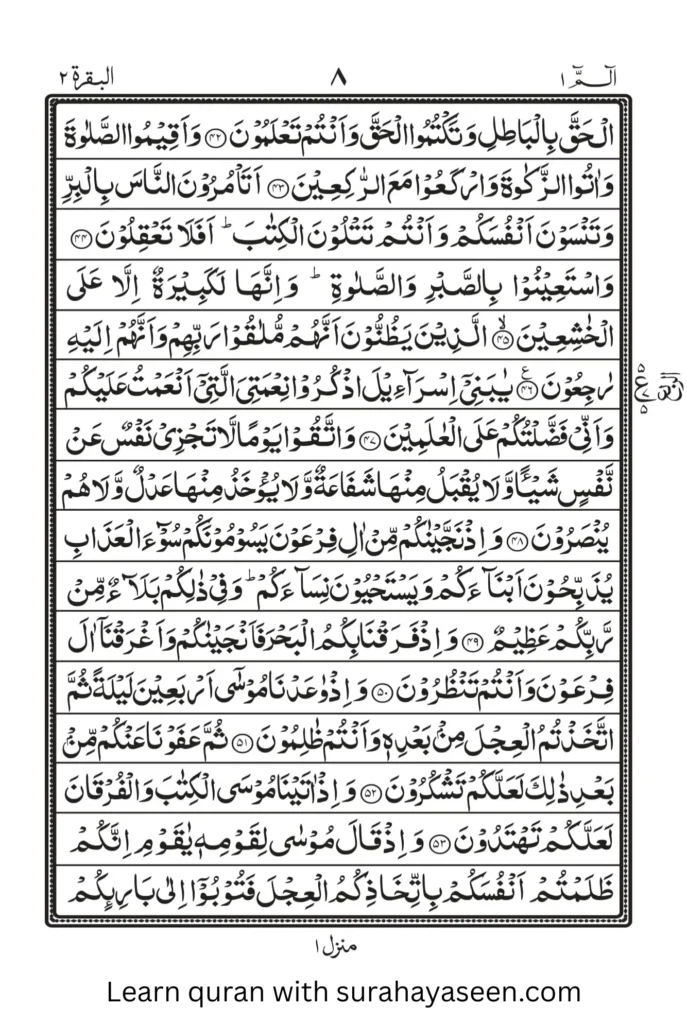 الٓـمّٓ ١ ٨ البقرة ٢
الۡحَقَّ بِالۡبَاطِلِ وَتَكۡتُمُوا الۡحَقَّ وَاَنۡتُمۡ تَعۡلَمُوۡنَ ﴿۴۲﴾ وَاَقِيۡمُوا الصَّلٰوةَ
وَاٰتُوا الزَّكٰوةَ وَارۡكَعُوۡا مَعَ الرّٰكِعِيۡنَ ﴿۴۳﴾ اَتَاۡمُرُوۡنَ النَّاسَ بِالۡبِرِّ
وَتَنۡسَوۡنَ اَنۡفُسَكُمۡ وَاَنۡتُمۡ تَتۡلُوۡنَ الۡكِتٰبَ ؕ اَفَلَا تَعۡقِلُوۡنَ ﴿۴۴﴾
وَاسۡتَعِيۡنُوۡا بِالصَّبۡرِ وَالصَّلٰوةِ ؕ وَاِنَّهَا لَكَبِيۡرَةٌ اِلَّا عَلَى
الۡخٰشِعِيۡنَ ﴿۴۵﴾ۙ الَّذِيۡنَ يَظُنُّوۡنَ اَنَّهُمۡ مُّلٰقُوۡا رَبِّهِمۡ وَاَنَّهُمۡ اِلَيۡهِ
رٰجِعُوۡنَ ﴿۴۶﴾ۧ يٰبَنِىۡٓ اِسۡرَآءِيۡلَ اذۡكُرُوۡا نِعۡمَتِىَ الَّتِىۡٓ اَنۡعَمۡتُ عَلَيۡكُمۡ
وَاَنِّىۡ فَضَّلۡتُكُمۡ عَلَى الۡعٰلَمِيۡنَ ﴿۴۷﴾ وَاتَّقُوۡا يَوۡمًا لَّا تَجۡزِىۡ نَفۡسٌ عَنۡ
نَّفۡسٍ شَيۡـًٔا وَّلَا يُقۡبَلُ مِنۡهَا شَفَاعَةٌ وَّلَا يُؤۡخَذُ مِنۡهَا عَدۡلٌ وَّلَا هُمۡ
يُنۡصَرُوۡنَ ﴿۴۸﴾ وَاِذۡ نَجَّيۡنٰكُمۡ مِّنۡ اٰلِ فِرۡعَوۡنَ يَسُوۡمُوۡنَكُمۡ سُوۡٓءَ الۡعَذَابِ
يُذَبِّحُوۡنَ اَبۡنَآءَكُمۡ وَيَسۡتَحۡيُوۡنَ نِسَآءَكُمۡ ؕ وَفِىۡ ذٰلِكُمۡ بَلَآءٌ مِّنۡ
رَّبِّكُمۡ عَظِيۡمٌ ﴿۴۹﴾ وَاِذۡ فَرَقۡنَا بِكُمُ الۡبَحۡرَ فَاَنۡجَيۡنٰکُمۡ وَاَغۡرَقۡنَآ اٰلَ
فِرۡعَوۡنَ وَاَنۡتُمۡ تَنۡظُرُوۡنَ ﴿۵۰﴾ وَاِذۡ وٰعَدۡنَا مُوۡسٰٓى اَرۡبَعِيۡنَ لَيۡلَةً ثُمَّ
اتَّخَذۡتُمُ الۡعِجۡلَ مِنۡۢ بَعۡدِهٖ وَاَنۡتُمۡ ظٰلِمُوۡنَ ﴿۵۱﴾ ثُمَّ عَفَوۡنَا عَنۡكُمۡ مِّنۡۢ
بَعۡدِ ذٰلِكَ لَعَلَّكُمۡ تَشۡكُرُوۡنَ ﴿۵۲﴾ وَاِذۡ اٰتَيۡنَا مُوۡسَى الۡكِتٰبَ وَالۡفُرۡقَانَ
لَعَلَّكُمۡ تَهۡتَدُوۡنَ ﴿۵۳﴾ وَاِذۡ قَالَ مُوۡسٰى لِقَوۡمِهٖ يٰقَوۡمِ اِنَّكُمۡ
ظَلَمۡتُمۡ اَنۡفُسَکُمۡ بِاتِّخَاذِكُمُ الۡعِجۡلَ فَتُوۡبُوۡٓا اِلٰى بَارِٮِٕكُمۡ
منزل ١
Learn quran with surahayaseen.com